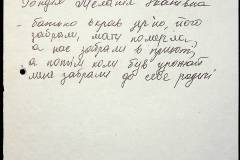 Меланія Іванівна
- батько вкрав зерно, його
забрали, мати померла,
а нас забрали в приют,
а потім коли був урожай
мене забрали до себе родичі